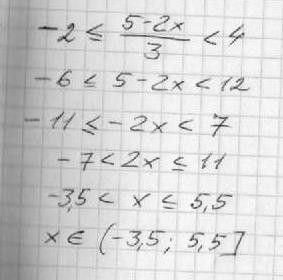 -2 ≤ (5-2x)/3 < 4
-6 ≤ 5-2x < 12
-11 ≤ -2x < 7
-7 < 2x ≤ 11
-3,5 < x ≤ 5,5
x ∈ (-3,5; 5,5]